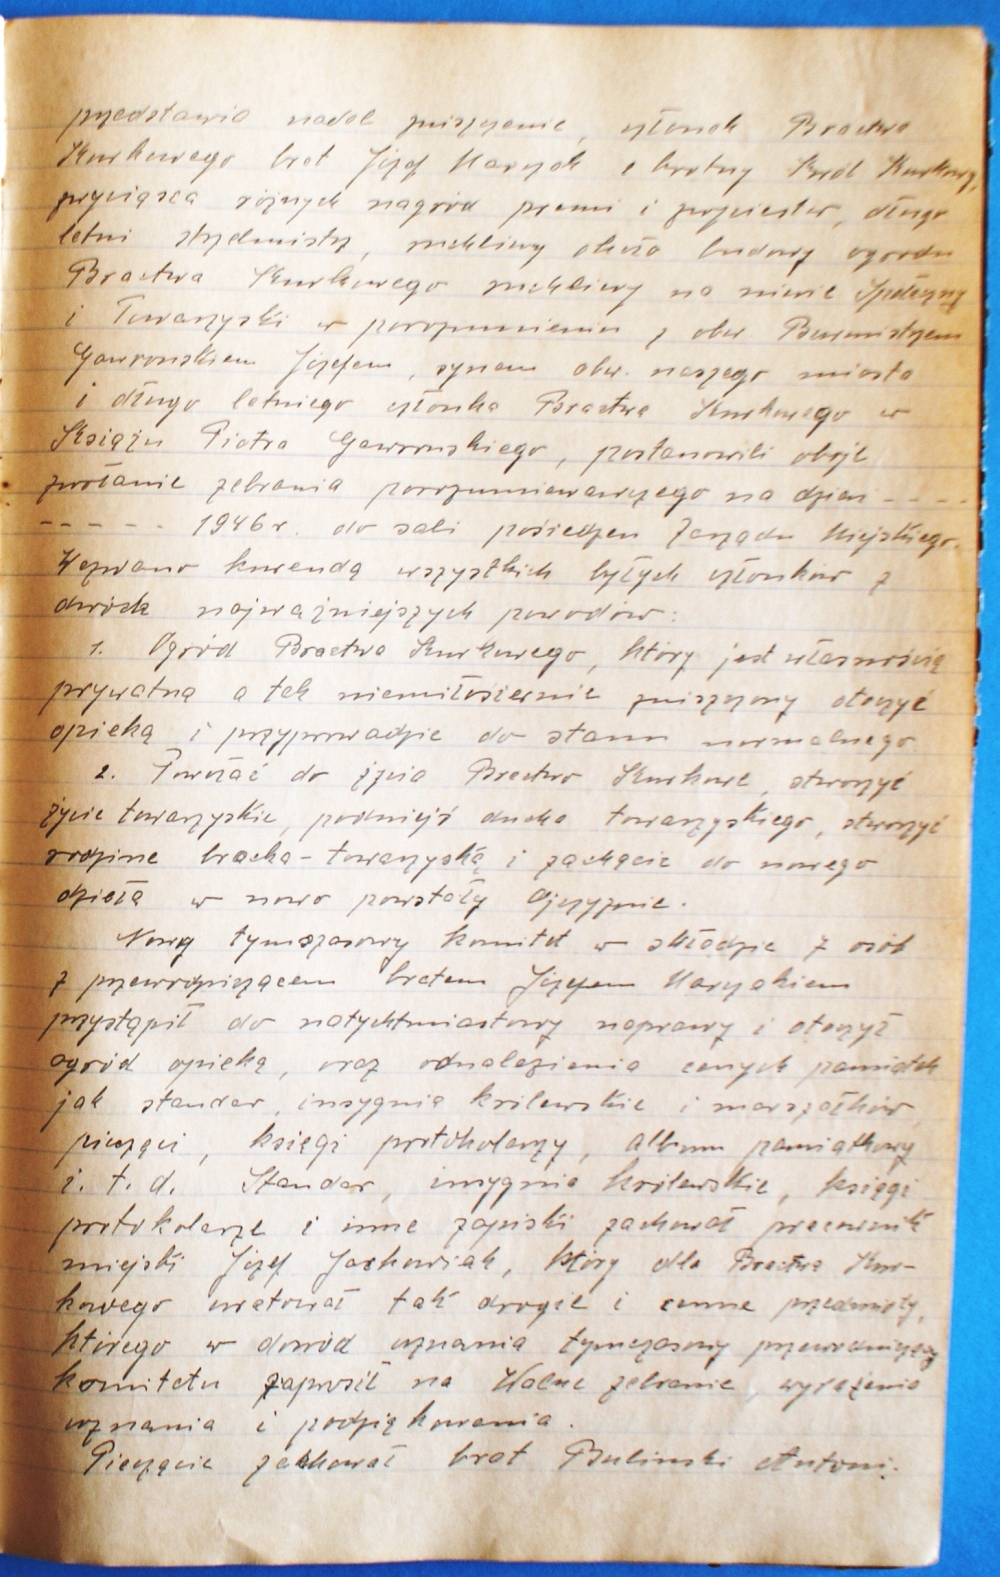 przedstawia nadal zniszczenie, członek Bractwa
Kurkowego brat Józef Marczak i krotny Król Kurkowy,
zwycięzca różnych nagród premi i zwycięstw, długo
letni strzelmistrz, ruchliwy około budowy ogrodu
Bractwa Kurkowego ruchliwy na niwie Społeczny
i Towarzyski w porozumieniu z obw Burmistrzem
Gawronskiem Józefem, synem obw. naszego miasta
i długo letniego członka Bractwa Kurkowego w
Książu Piotra Gawronskiego, postanowili oboje
zwołanie zebrania porozumiewawczego na dzien ----
----- 1946 r. do sali posiedzen Zarządu Miejskiego.
Wezwano kurendą wszystkich byłych członków z
dwóch najważniejszych powodów:
1. Ogród Bractwa Kurkowego, który jest własnością
prywatną a tak niemiłosiernie zniszczony otoczyć
opieką i przyprowadzic do stanu normalnego
2. Powołać do życia Bractwo Kurkowe, stworzyć
życie towarzyskie, podniejś ducha towarzyskiego, stworzyć
rodzine bracką-towarzyską i zachęcic do nowego
dzieła w nowo powstały Ojczyznie.
Nowy tymczasowy komitet w składzie 7 osób
z przewodniczącem bratem Józefem Marczakiem
przystąpił do natychtmiastowy naprawy i otoczył
ogród opieką, oraz odnalezienia cenych pamiątek
jak standar, insygnia królewskie i marszałków,
pieczęci, księgi protokolarzy, album pamiątkowy
i. t. d. Standar, insygnia królewskie, księgi
protokolarze i inne zapiski zachował pracownik
miejski Józef Jachowiak, który dla Bractwa Kur-
kowego uratował tak drogie i cenne przedmioty,
którego w dowód uznania tymczasowy przewodniczący
komitetu zaprosił na Walne zebranie, wyrażenia
uznania i podziękowania.
Pieczęcie zachował brat Bulinski Antoni.